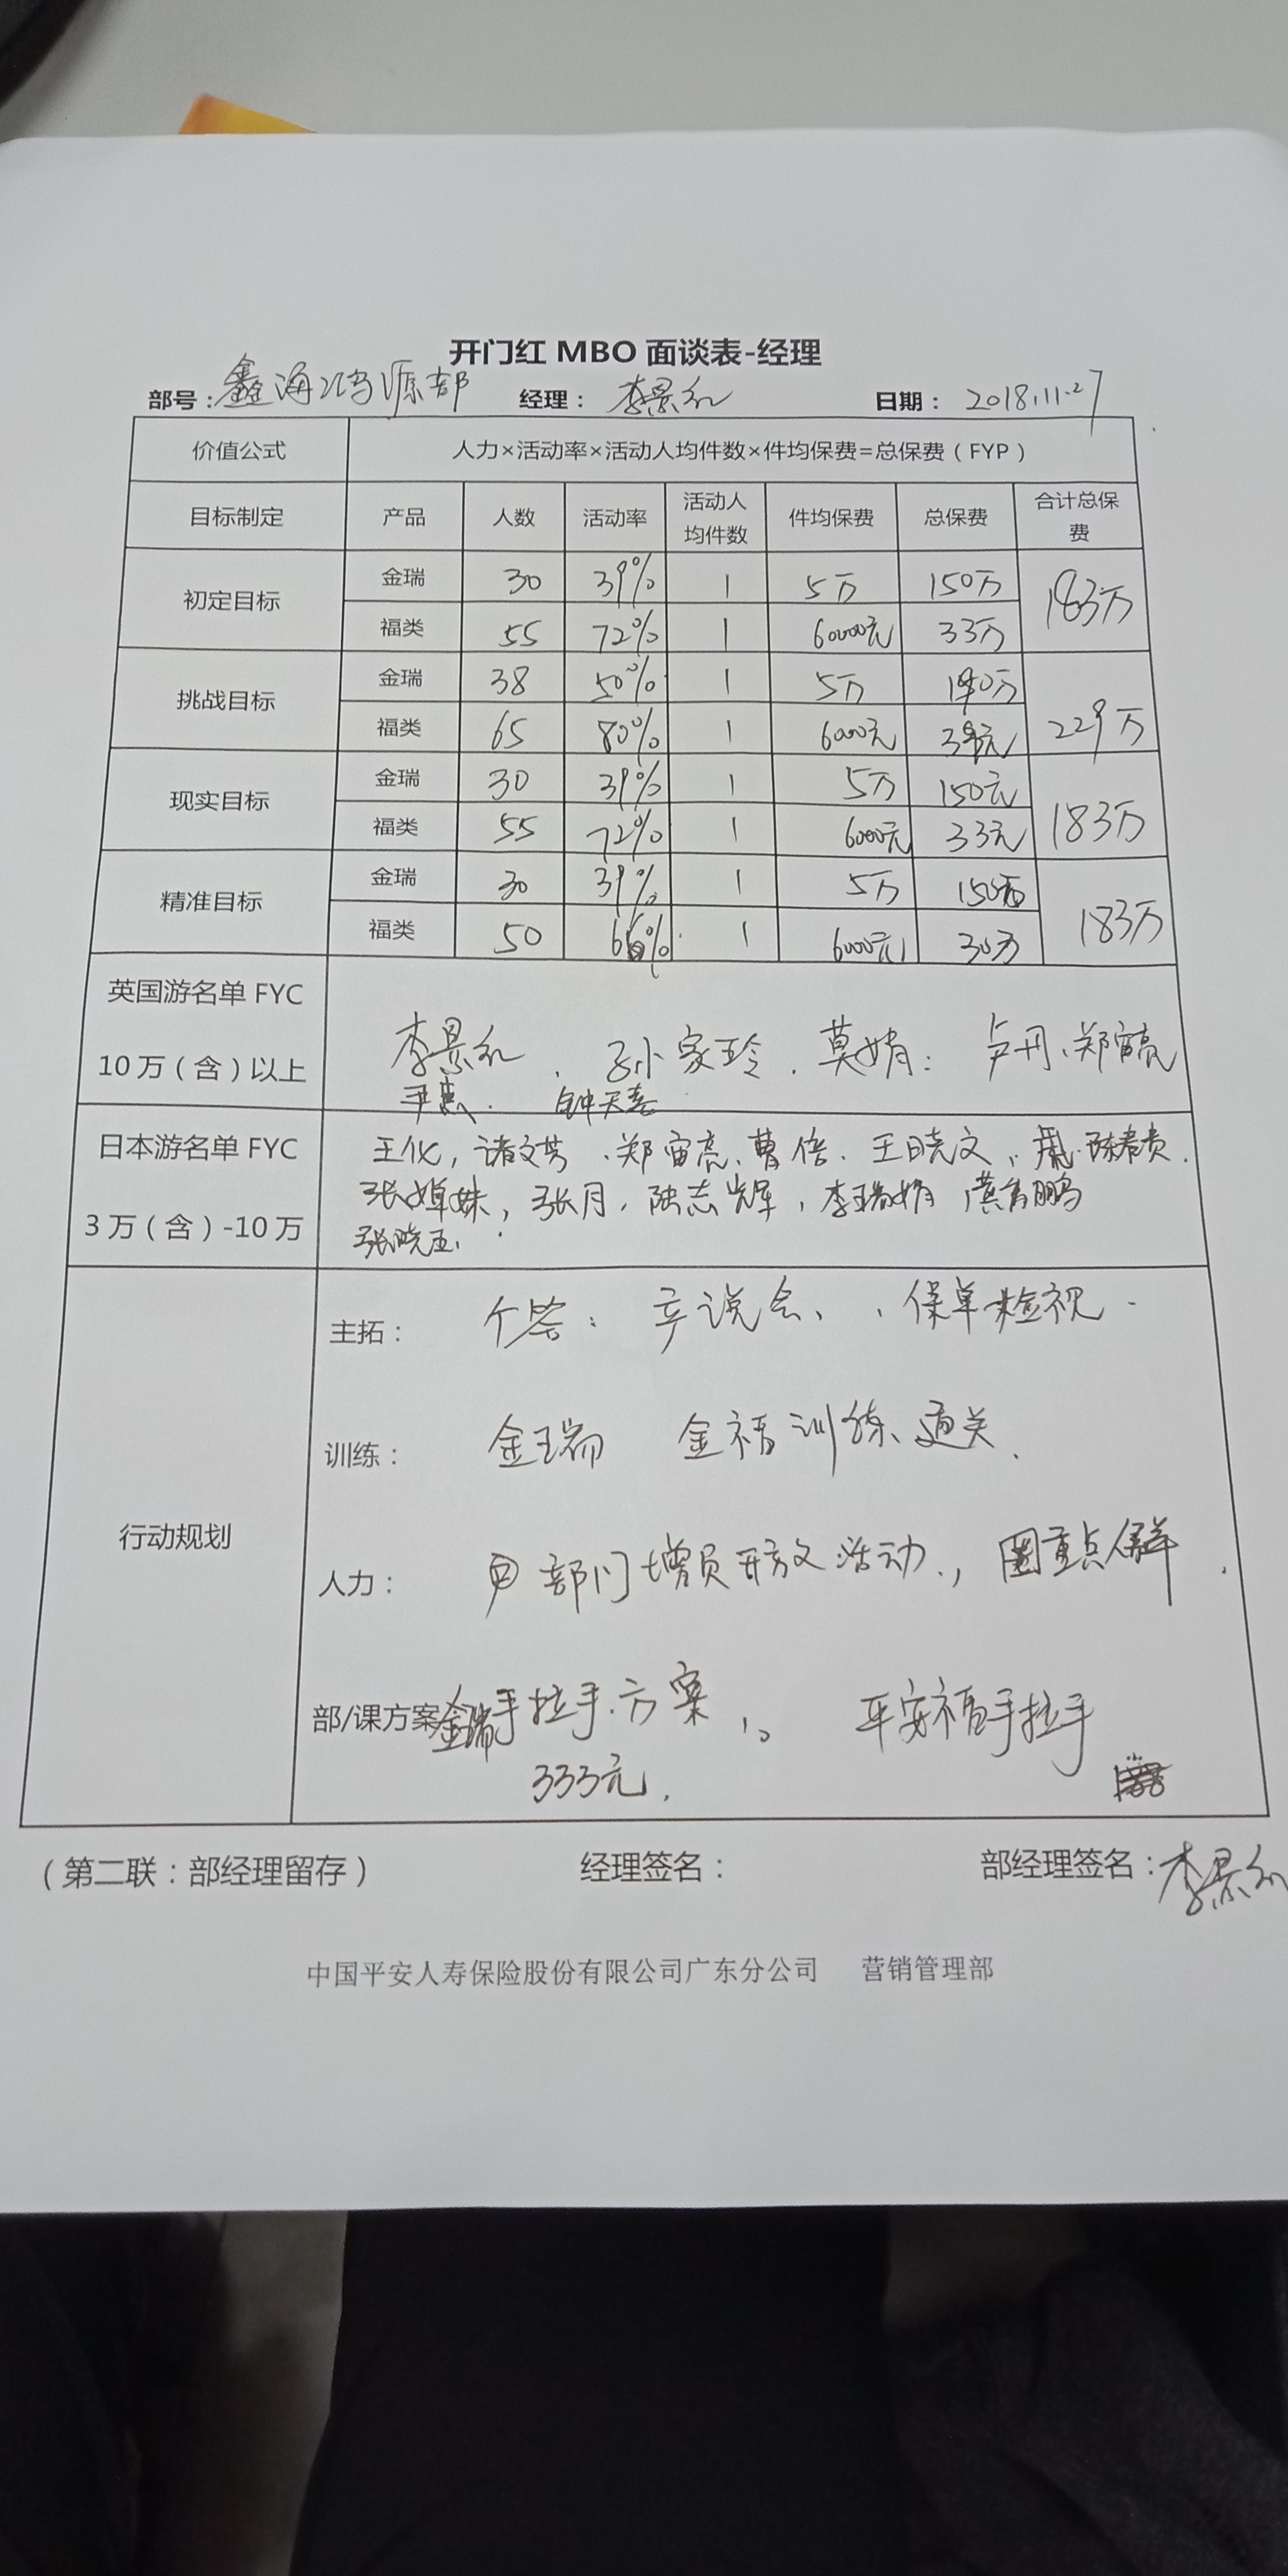 开门红 MBO 面谈表-经理
部号：鑫海鸿源部 经理：李景私 日期：2018.11.27
价值公式 人力×活动率×活动人均件数×件均保费=总保费（FYP）
目标制定 产品 人数 活动率 活动人均件数 件均保费 总保费 合计总保费
初定目标 金瑞 30 39% 1 5万 150万 183万
福类 55 72% 1 6000元 33万
挑战目标 金瑞 38 50% 1 5万 190万 229万
福类 65 80% 1 6000元 39元
现实目标 金瑞 30 39% 1 5万 150元 183万
福类 55 72% 1 6000元 33元
精准目标 金瑞 30 39% 1 5万 150万 183万
福类 50 66% 1 6000元 30万
英国游名单 FYC
10 万（含）以上
李景 、孙家玲、莫娟、卢丹、郑宙亮
尹惠、钟天喜
日本游名单 FYC
3 万（含）-10 万
王化，诸文芳、郑宙亮、曹倍、王晓文、陈春贵、
张婵妹，张月，陆志辉，李瑞娟
张晓玉
行动规划
主拓： 个 产说会、保单检视
训练： 金瑞 金福训练、通关
人力： 部门增员开放活动，圈重点人群
部/课方案 金瑞手拉手方案，平安福手拉手
333元
（第二联：部经理留存） 经理签名： 部经理签名：李景
中国平安人寿保险股份有限公司广东分公司 营销管理部